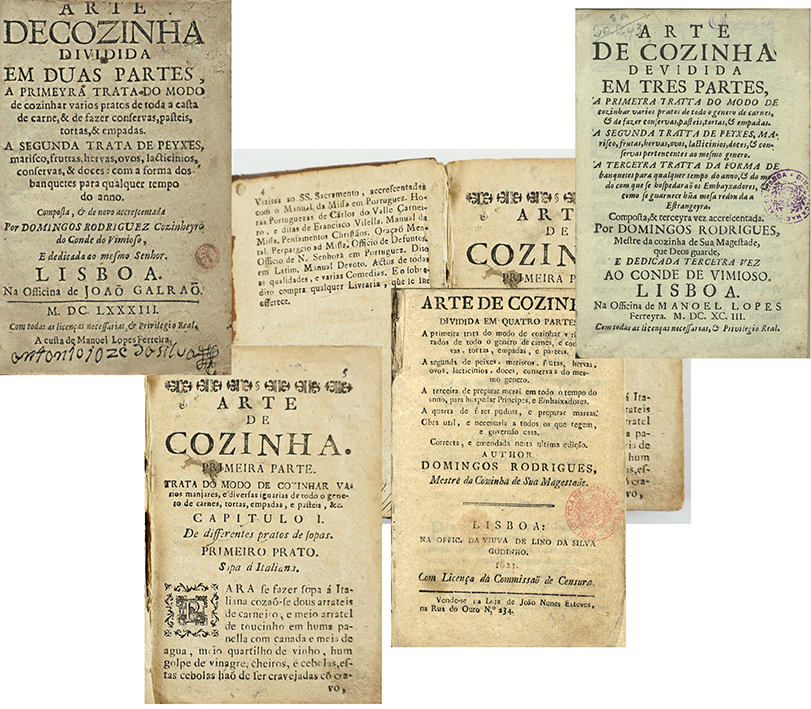 ARTE
DECOZINHA
DIVIDIDA
EM DUAS PARTES,
A PRIMEYRA TRATA DO MODO
de cozinhar varios pratos de toda a casta
de carne, & de fazer conservas, pasteis,
tortas, & empadas.
A SEGUNDA TRATA DE PEYXES,
marisco, fruttas, hervas, ovos, lacticinios,
conservas, & doces: com a forma dos
banquetes para qualquer tempo
do anno.
Composta, & de novo accrescentada
Por DOMINGOS RODRIGUEZ Cozinheyro
do Conde do Vimioso,
E dedicada ao mesmo Senhor.
LISBOA.
Na Officina de JOAÕ GALRAÕ.
M. DC. LXXXIII.
Com todas as licenças necessarias, & Privilegio Real.
A custa de Manoel Lopes Ferreira.
antonio joze da silva
ARTE
DE COZINHA
DEVIDIDA
EM TRES PARTES,
A PRIMEYRA TRATTA DO MODO DE
cozinhar varios pratos de todo o genero de carnes,
& de fazer conservas, pasteis, tortas, & empadas.
A SEGUNDA TRATTA DE PEYXES, MA-
risco, frutas, hervas, ovos, lacticinios, doces, & con-
servas pertencentes ao mesmo genero.
A TERCEYRA TRATTA DA FORMA DE
banquetes para qualquer tempo do anno, & do mo-
do com que se hospedaraõ os Embayxadores,
como se guarnece hũa mesa redonda a
Estrangeyra.
Composta, & terceyra vez accrescentada.
Por DOMINGOS RODRIGUES,
Mestre da cozinha de Sua Magestade,
que Deos guarde,
E DEDICADA TERCEYRA VEZ
AO CONDE DE VIMIOSO.
LISBOA.
Na Officina de MANOEL LOPES
Ferreyra. M. DC. XC. III.
Com todas as licenças necessarias, & Privilegio Real.
4
Visitas ao SS. Sacramento, accrescentadas
com o Manual da Missa em Portuguez. Ho-
ras Portuguezas de Carlos do Valle Carnei-
ro, e ditas de Francisco Vilella. Manual da
Missa. Pensamentos Christãos. Oraçaõ Men-
tal. Perparação ao Missa. Officio de Defuntos.
Officio de N. Senhora em Portuguez. Dito
em Latim. Manual Devoto. Actos de todas
as qualidades, e varias Comedias. E o sobre-
dito compra qualquer Livraria, que se lhe
offerece.
ART
DE
COZIN
PRIMEIRA PARTE
ARTE DE COZINH
DIVIDIDA EM QUATRO PARTES
A primeira trata do modo de cozinhar v
de todo o genero de carnes, e
vas, tortas, empadas, e pasteis.
A segunda de peixes, mariscos, frutas, hervas,
ovos, lacticinios, doces, conservas do mes-
mo genero.
A terceira de preparar mezas em todo o tempo do
anno, para hospedar Principes, e Embaixadores.
A quarta de fazer pudins, e preparar massas.
Obra util, e necessaria a todos os que regem,
e governão casa.
Correcta, e emendada nesta ultima edição.
AUTHOR
DOMINGOS RODRIGUES,
Mestre da Cozinha de Sua Magestade.
LISBOA:
NA OFFIC. DA VIUVA DE LINO DA SILVA
GODINHO.
Com Licença da Commissaõ de Censura.
Vende-se na Loja de João Nunes Esteves,
na Rua do Ouro N.º 234.
5
ARTE
DE
COZINHA.
PRIMEIRA PARTE.
TRATA DO MODO DE COZINHAR VA-
rios manjares, e diversas iguarias de todo o gene-
ro de carnes, tortas, empadas, e pasteis, &c.
CAPITULO I.
De differentes pratos de sopas.
PRIMEIRO PRATO.
Sopa á Italiana.
PARA se fazer sopa á Ita-
liana cozaõ-se dous arrateis
de carneiro, e meio arratel
de toucinho em huma pa-
nella com canada e meia de
agua, meio quartilho de vinho, hum
golpe de vinagre, cheiros, e cebolas, es-
tas cebolas haõ de ser cravejadas cõ cra-
vo,
á Ita-
rateis
arratel
pa-
de
hum
es-
cra-
vo,